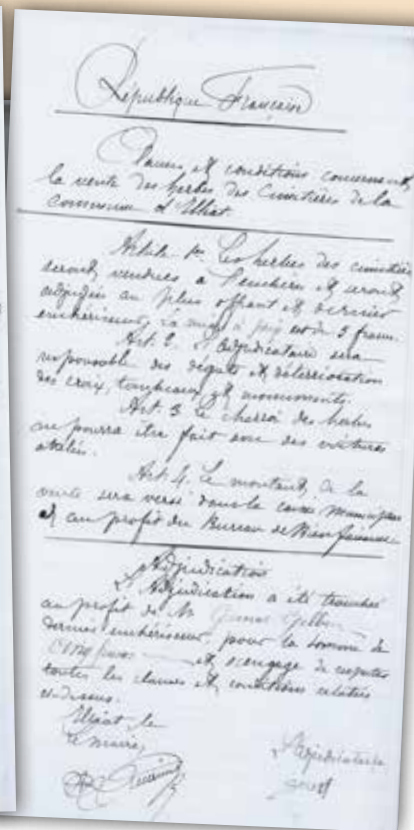 République Française
Clauses et conditions concernant
la vente des herbes des Cimetières de la
commune d'Ussat
Article 1er Les herbes des cimetières
seront vendues à l'enchère et seront
adjugées au plus offrant et dernier
enchérisseur, la mise à prix est de 5 francs.
Art. 2. L'adjudicataire sera
responsable des dégats et détérioration
des croix, tombeaux et monuments.
Art. 3 Le charroi des herbes
ne pourra être fait avec des voitures
attelées.
Art 4. Le montant de la
vente sera versé dans la caisse Municipale
et au profit du Bureau de Bienfaisance
Adjudication
L'Adjudication a été tranchée
au profit de M
dernier enchérisseur, pour la somme de
Cinq francs et s'engage de respecter
toutes les clauses et conditions relatées
ci-dessus.
le
Le maire, L'adjudicataire